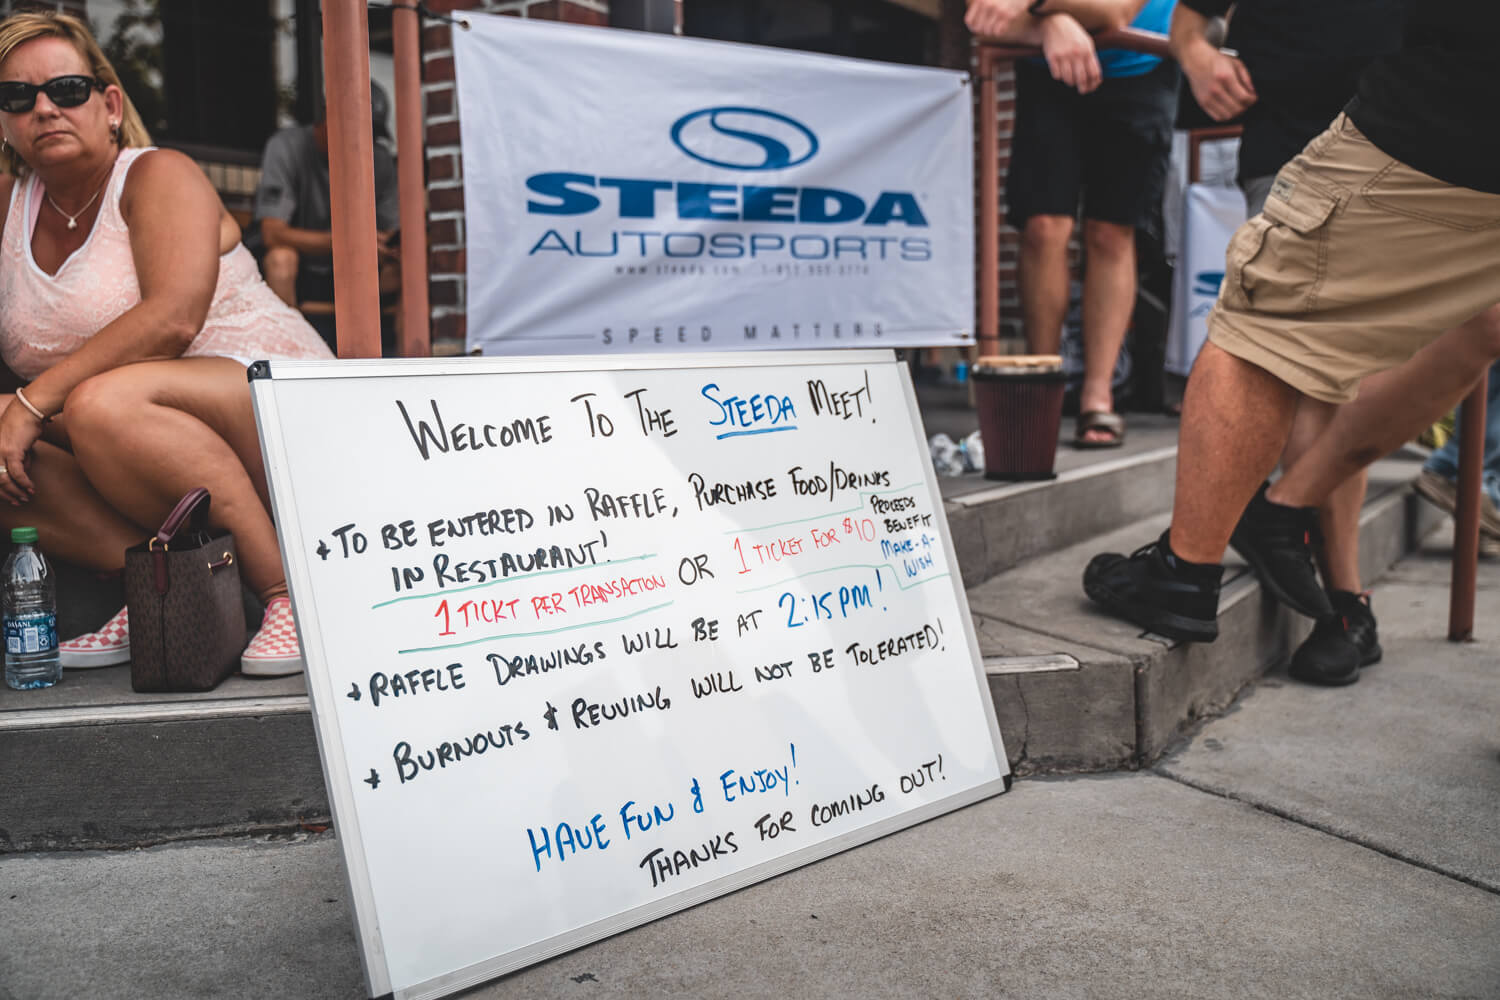 STEEDA
AUTOSPORTS
www.steeda.com
SPEED MATTERS
WELCOME TO THE STEEDA MEET!
* TO BE ENTERED IN RAFFLE, PURCHASE FOOD/DRINKS
IN RESTAURANT!
1 TICKT PER TRANSACTION OR 1 TICKET FOR $10
PROCEEDS
BENEFIT
MAKE-A-
WISH
* RAFFLE DRAWINGS WILL BE AT 2:15 PM!
* BURNOUTS & REVVING WILL NOT BE TOLERATED!
HAVE FUN & ENJOY!
THANKS FOR COMING OUT!
DASANI